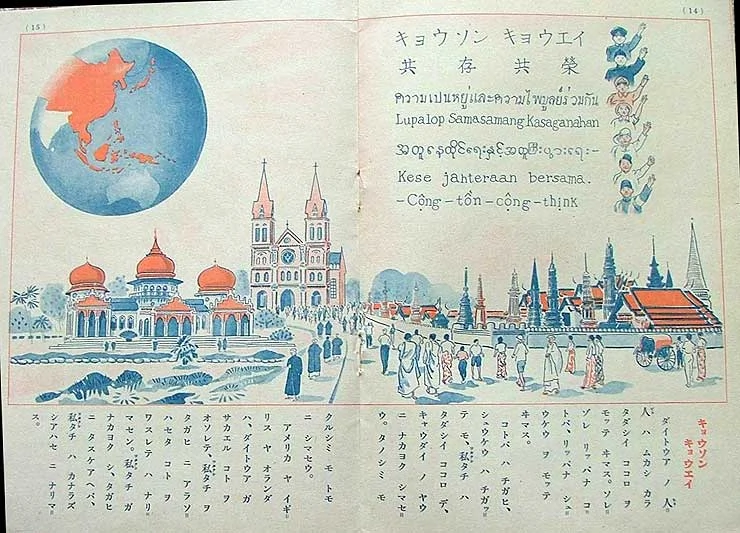 (14)
キョウソン キョウエイ
共存共榮
ความเปนหยู่และความไพบูลย์ร่วมกัน
Lupalop Samasamang Kasaganahan
အတူနေထိုင်ရေးနှင့်အတူကြီးပွားရေး-
Kese jahteraan bersama.
-Cộng-tồn-cộng-thịnk
キョウソン
キョウエイ
ダイトウア ノ 人
人 ハ ムカシ カラ
タダシイ ココロ ヲ
モッテ ヰマス。ソレ
ゾレ リッパナ コ
トバ、リッパナ シュ
ウケウ ヲ モッテ
ヰマス。
コトバ ハ チガヒ、
シュウケウ ハ チガッ
テ モ、私タチ ハ
タダシイ ココロ デ、
キャウダイ ノ ヤウ
ニ ナカヨク シマセ
ウ。タノシミ モ
(15)
クルシミ モ トモ
ニ シマセウ。
アメリカ ヤ イギ
リス ヤ オランダ
ハ、ダイトウア ガ
サカエル コト ヲ
オソレテ、私タチ ヲ
タガヒ ニ アラソ
ハセタ コト ヲ
ワスレテ ハ ナリ
マセン。私タチ ガ
ナカヨク シ、タガヒ
ニ タスケアヘバ、
私タチ ハ カナラズ
シアハセ ニ ナリマ
ス。